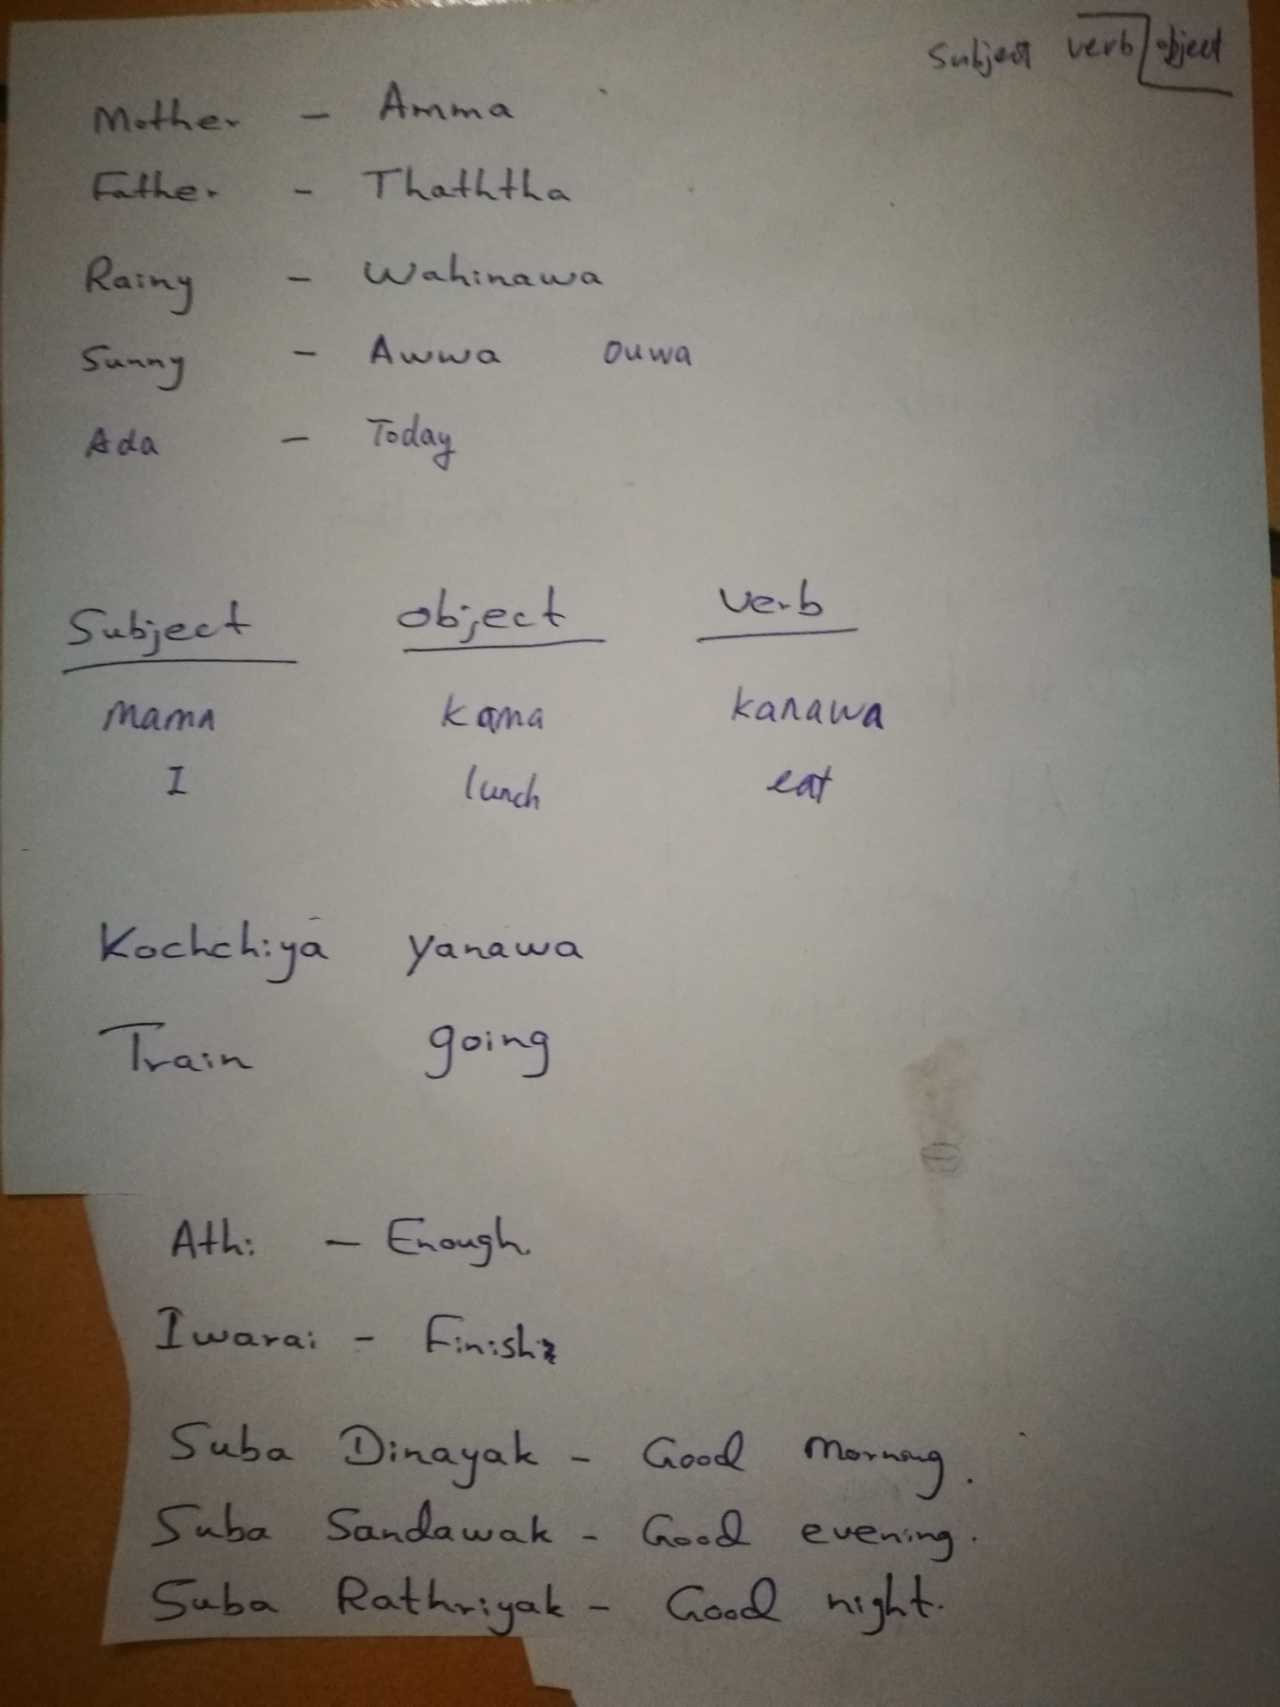 Subject verb object
Mother - Amma
Father - Thaththa
Rainy - Wahinawa
Sunny - Awwa ouwa
Ada - Today
Subject object verb
Mama kama kanawa
I lunch eat
Kochchiya yanawa
Train going
Athi - Enough.
Iwarai - Finish
Suba Dinayak - Good Morning.
Suba Sandawak - Good evening.
Suba Rathriyak - Good night.